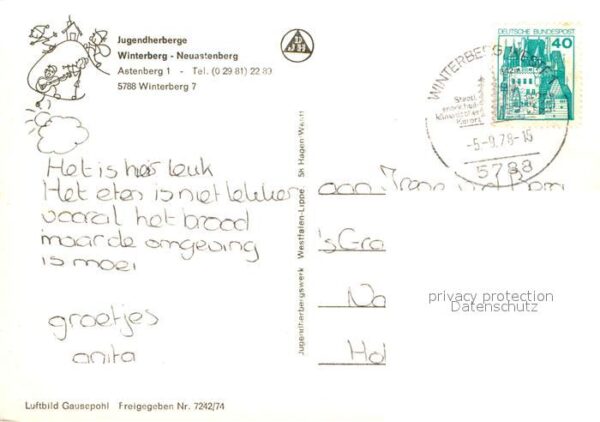 Jugendherberge
Winterberg - Neuastenberg
Astenberg 1 - Tel. (0 29 81) 22 89
5788 Winterberg 7
DEUTSCHE BUNDESPOST
40
WINTERBERG
-5-9.78-15
5788
Het is hier leuk
Het eten is niet lekker
vooral het brood
maar de omgeving
is mooi
groetjes
anita
aan
's Gra
No
Hol
privacy protection
Datenschutz
Jugendherbergswerk Westfalen-Lippe, 58 Hagen-Westf.
Luftbild Gausepohl Freigegeben Nr. 7242/74